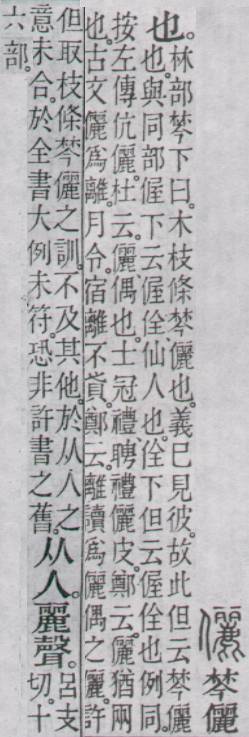 儷 棽儷
也。林部棽下曰。木枝條棽儷也。義已見彼。故此但云棽儷
也。與同部偓下云偓佺仙人也。佺下但云偓佺也。例同。
按左傳伉儷。杜云。儷、偶也。士冠禮、聘禮儷皮。鄭云。儷猶兩
也。古文儷爲離。月令。宿離不貣。鄭云。離讀爲儷偶之儷。許
但取枝條棽儷之訓。不及其他。於从人之
意未合。於全書大例未符。恐非許書之舊。
从人。麗聲。呂支
切。十
六部。